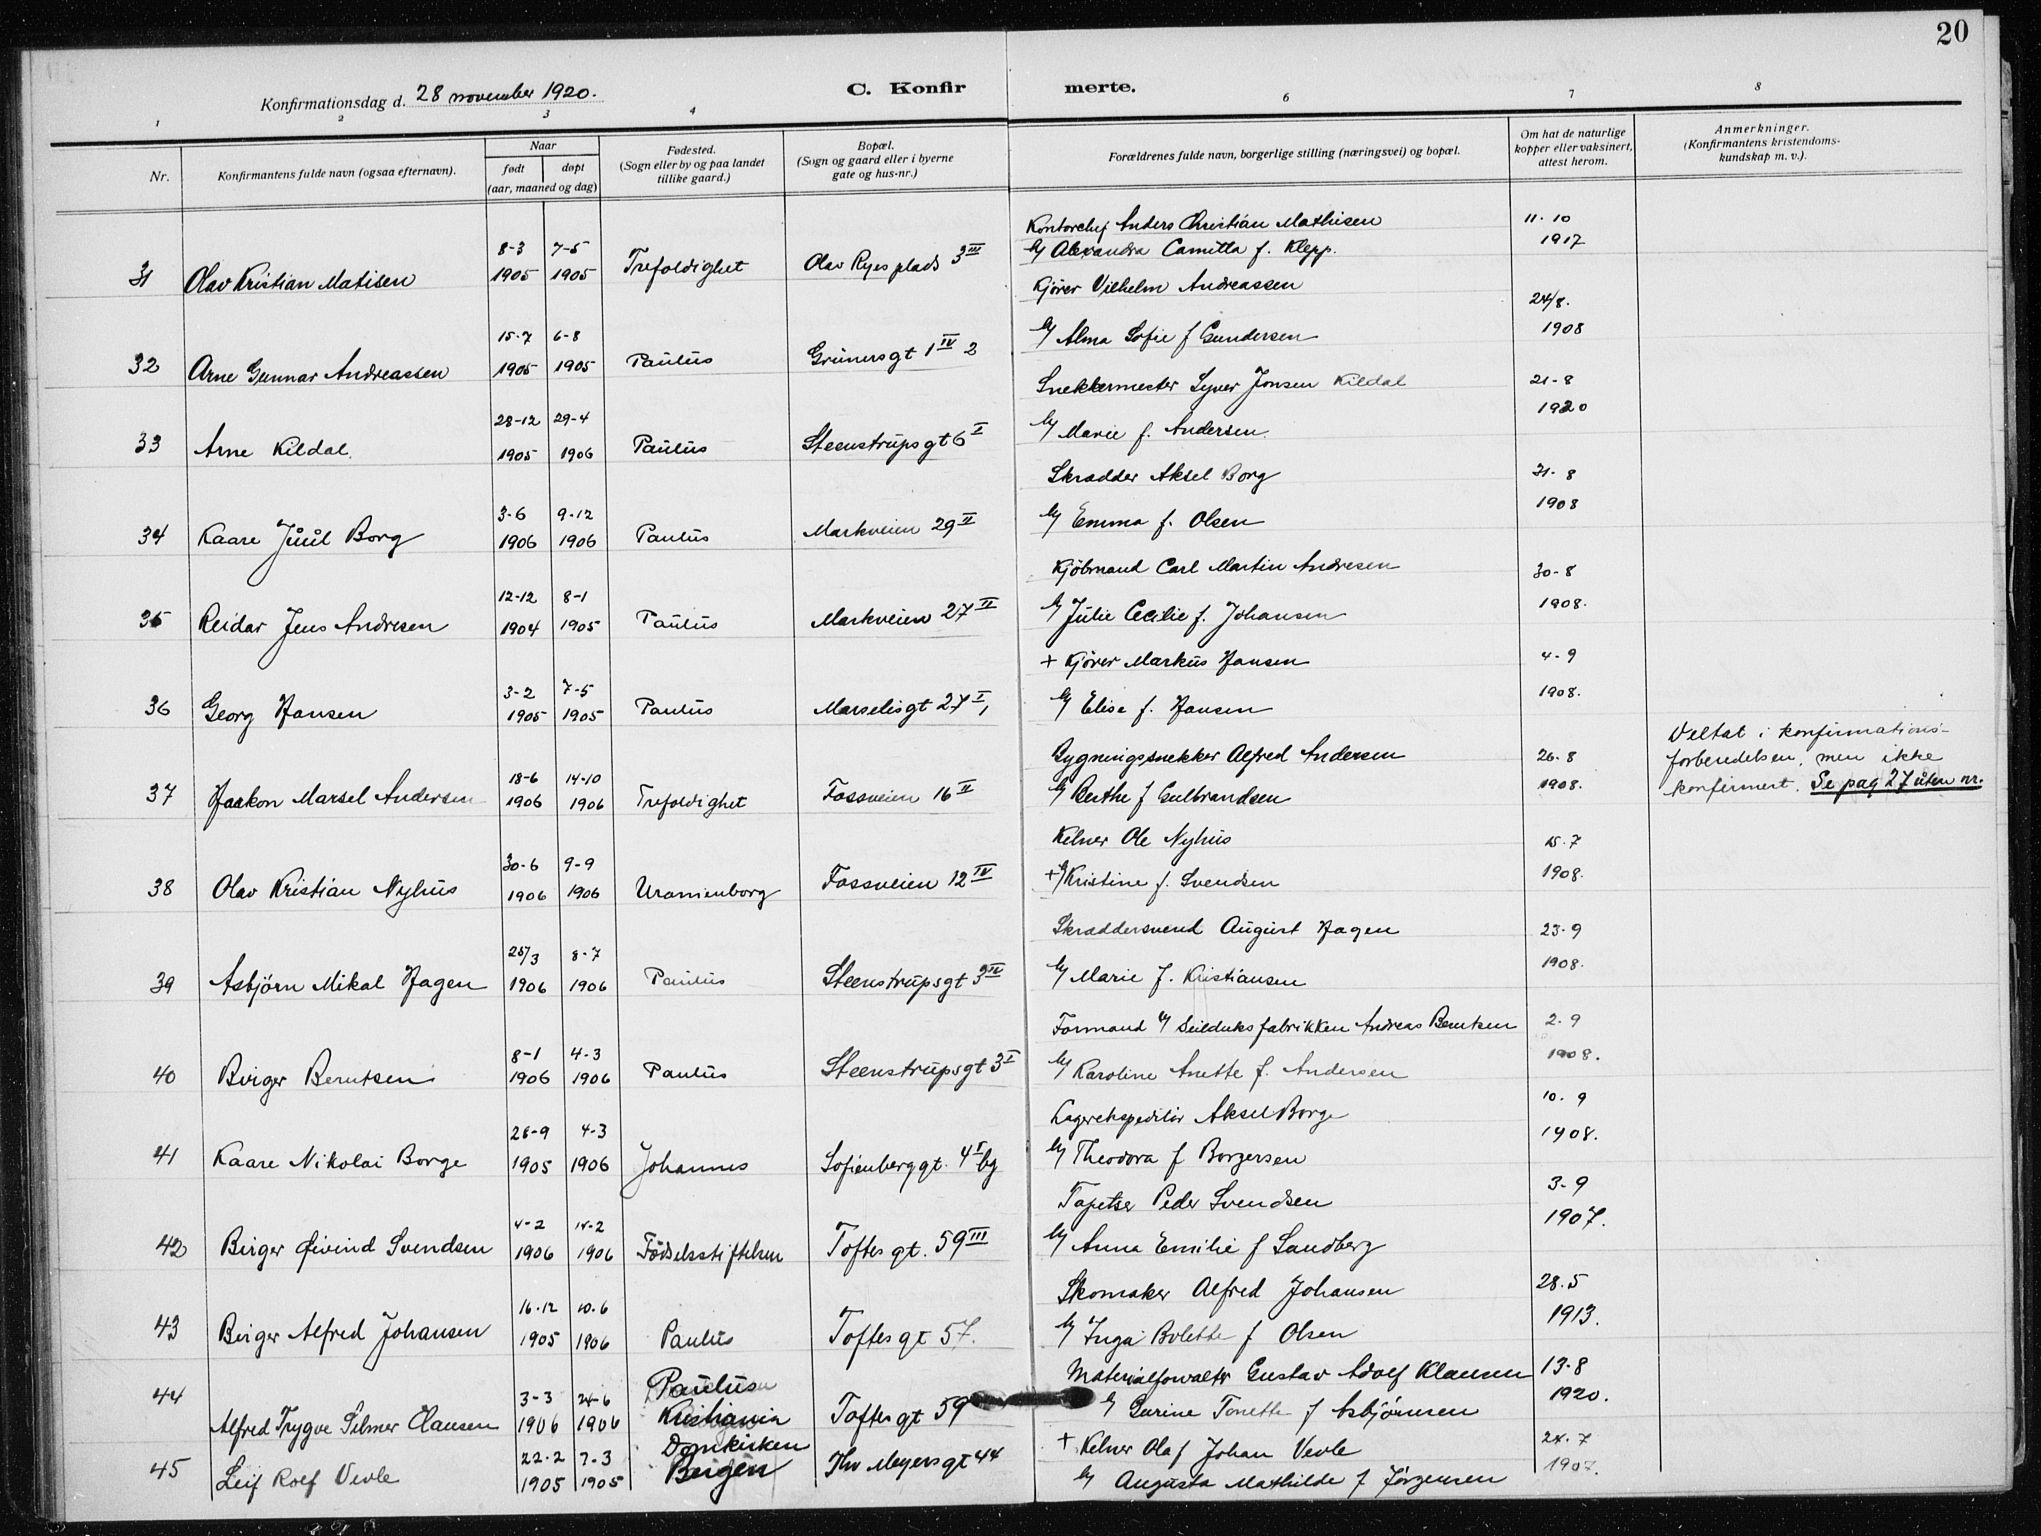 20
Konfirmationsdag d. 28 november 1920.
C. Konfirmerte.
1 2 3 4 6 7 8
Nr.
Konfirmantens fulde navn (ogsaa efternavn).
Naar
født døpt
(aar, maaned og dag)
Fødested.
(Sogn eller by og paa landet
tillike gaard.)
Bopæl.
(Sogn og gaard eller i byerne
gate og hus-nr.)
Forældrenes fulde navn, borgerlige stilling (næringsvei) og bopæl.
Om hat de naturlige
kopper eller vaksinert,
attest herom.
Anmerkninger.
(Konfirmantens kristendoms-
kundskap m. v.).
Kontorchef Anders Christian Mathisen 11-10
8-3 7-5 Alexandra Camilla f. Klepp. 1917
31 Olav Kristian Matisen 1905 1905 Trefoldighet Olav Ryes plads 3 III
Kjører Vilhelm Andreassen 24/8.
15-7 6-8 Alma Sofie f Gundersen 1908
32 Arne Gunnar Andreassen 1905 1905 Paulus Grünersgt 1 IV 2
Snekkermester Syver Jonsen Kildal 21-8
28-12 29-4 Marie f. Andersen 1920
33 Arne Kildal. 1905 1906 Paulus Steenstrupsgt 6 I
Skrædder Aksel Borg 31-8
3-6 9-12 Emma f. Olsen 1908
34 Kaare Juul Borg 1906 1906 Paulus Markveien 29 II
Kjöbmand Carl Martin Andresen 30-8
12-12 8-1 Julie Cecilie f. Johansen 1908.
35 Reidar Jens Andresen 1904 1905 Paulus Markveien 27 II
+ Kjører Markus Hansen 4-9
3-2 7-5 Elise f. Hansen 1908.
36 Georg Hansen 1905 1905 Paulus Marselisgt 27 I,
Bygningssnekker Alfred Andersen 26-8 Deltat i konfirmations-
18-6 14-10 Berthe f Gulbrandsen 1908. forberedelsen, men ikke
37 Haakon Marsel Andersen 1906 1906 Trefoldighet Fossveien 16 II konfirmert. Se pag 27 uten nr.
Kelner Ole Nyhus 15-7
30-6 9-9 + Kristine f. Svendsen 1908.
38 Olav Kristian Nyhus 1906 1906 Uranienborg Fossveien 12 IV
Skræddersvend August Hagen 23-9
25/3 8-7 Marie f. Kristiansen 1908.
39 Asbjörn Mikal Hagen 1906 1906 Paulus Steenstrupsgt 3 IV
Formand v/ Seilduksfabrikken Andreas Berntsen 2-9
8-1 4-3 Karoline Anette f. Andersen 1908.
40 Birger Berntsen 1906 1906 Paulus Steenstrupsgt 3 I
Lagerekspeditör Aksel Borge 10-9
26-9 4-3 Theodora f Borgersen 1908.
41 Kaare Nikolai Borge 1905 1906 Johannes Sofienberggt. 4 I bg
Tapetser Peder Svendsen 3-9
4-2 14-2 Anna Emilie f Sandberg 1907.
42 Birger Øivind Svendsen 1906 1906 Födselsstiftelsen Toftesgt. 59 III
Skomaker Alfred Johansen 28-5
16-12 10-6 Inga Bolette f Olsen 1913.
43 Birger Alfred Johansen 1905 1906 Paulus Toftesgt 57.
Materialforvalter Gustav Adolf Klausen 13-8
44 3-3 24-6 Paulus Gurine Tonette f Asbjörnsen 1920.
Alfred Trygve Hilmer Clausen 1906 1906 Kristiania Toftesgt 59
+ Kelner Olaf Johan Vevle 24-7
22-2 7-3 Domkirken Augusta Mathilde f Jörgensen 1907.
45 Leif Rolf Vevle 1905 1905 Bergen Thv Meyersgt 44